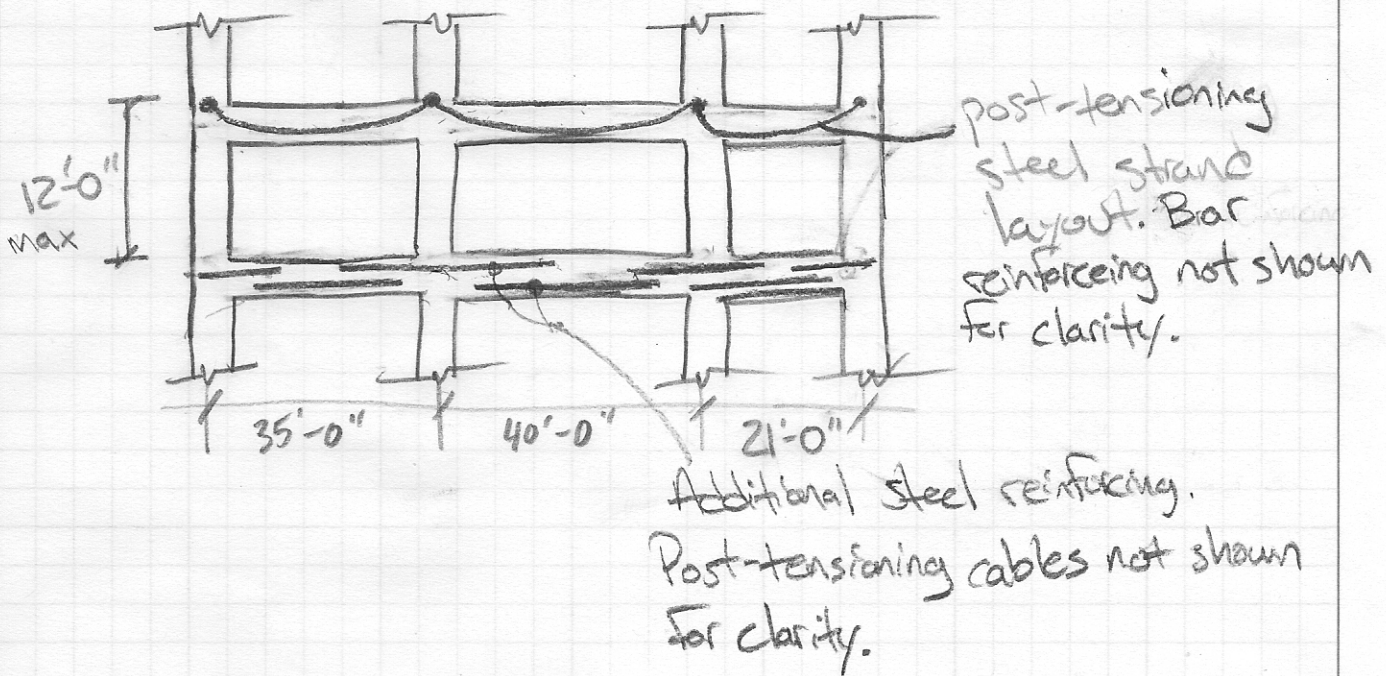 post-tensioning
steel strand
layout. Bar
reinforceing not shown
for clarity.
12'-0"
max
35'-0"
40'-0"
21'-0"
Additional steel reinforcing.
Post-tensioning cables not shown
for clarity.